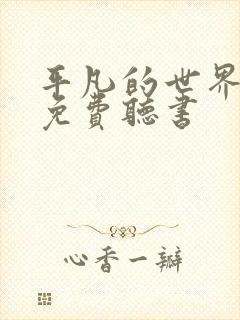 平凡的世界
免費聽書
心香一瓣